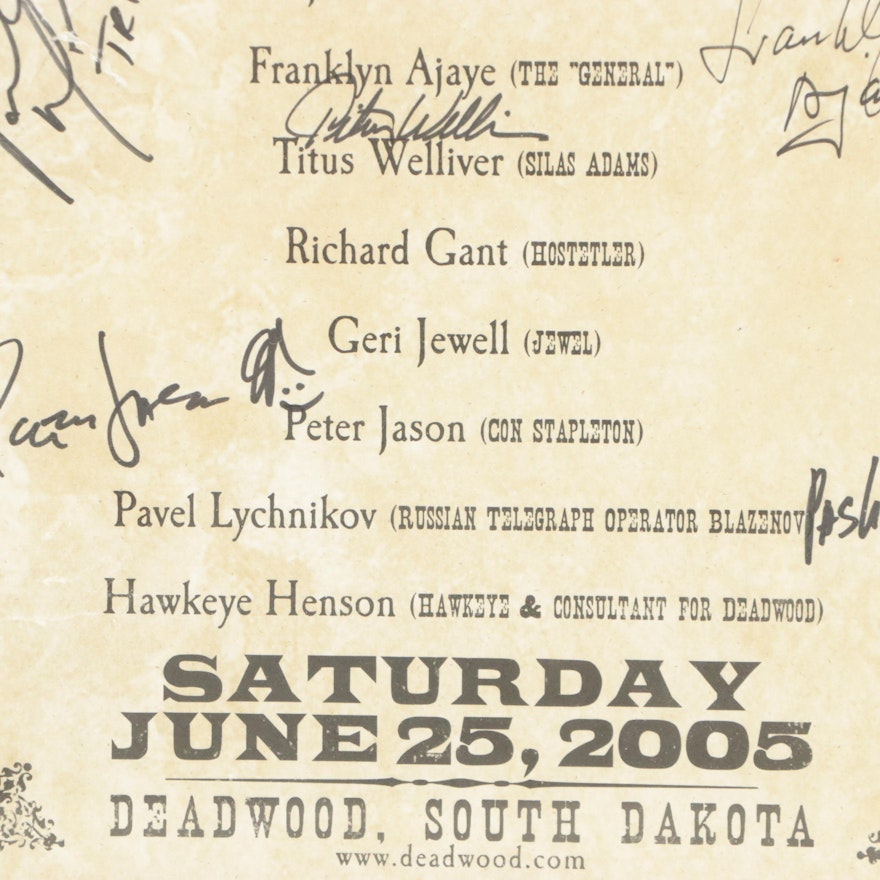 TRI
Franklyn Ajaye (THE "GENERAL")
Franklyn
Aja
Titus Welliver
Titus Welliver (SILAS ADAMS)
Richard Gant (HOSTETLER)
Geri Jewell (JEWEL)
Peter Jason (CON STAPLETON)
Pavel Lychnikov (RUSSIAN TELEGRAPH OPERATOR BLAZENOV
Pash
Hawkeye Henson (HAWKEYE & CONSULTANT FOR DEADWOOD)
SATURDAY
JUNE 25, 2005
DEADWOOD, SOUTH DAKOTA
www.deadwood.com